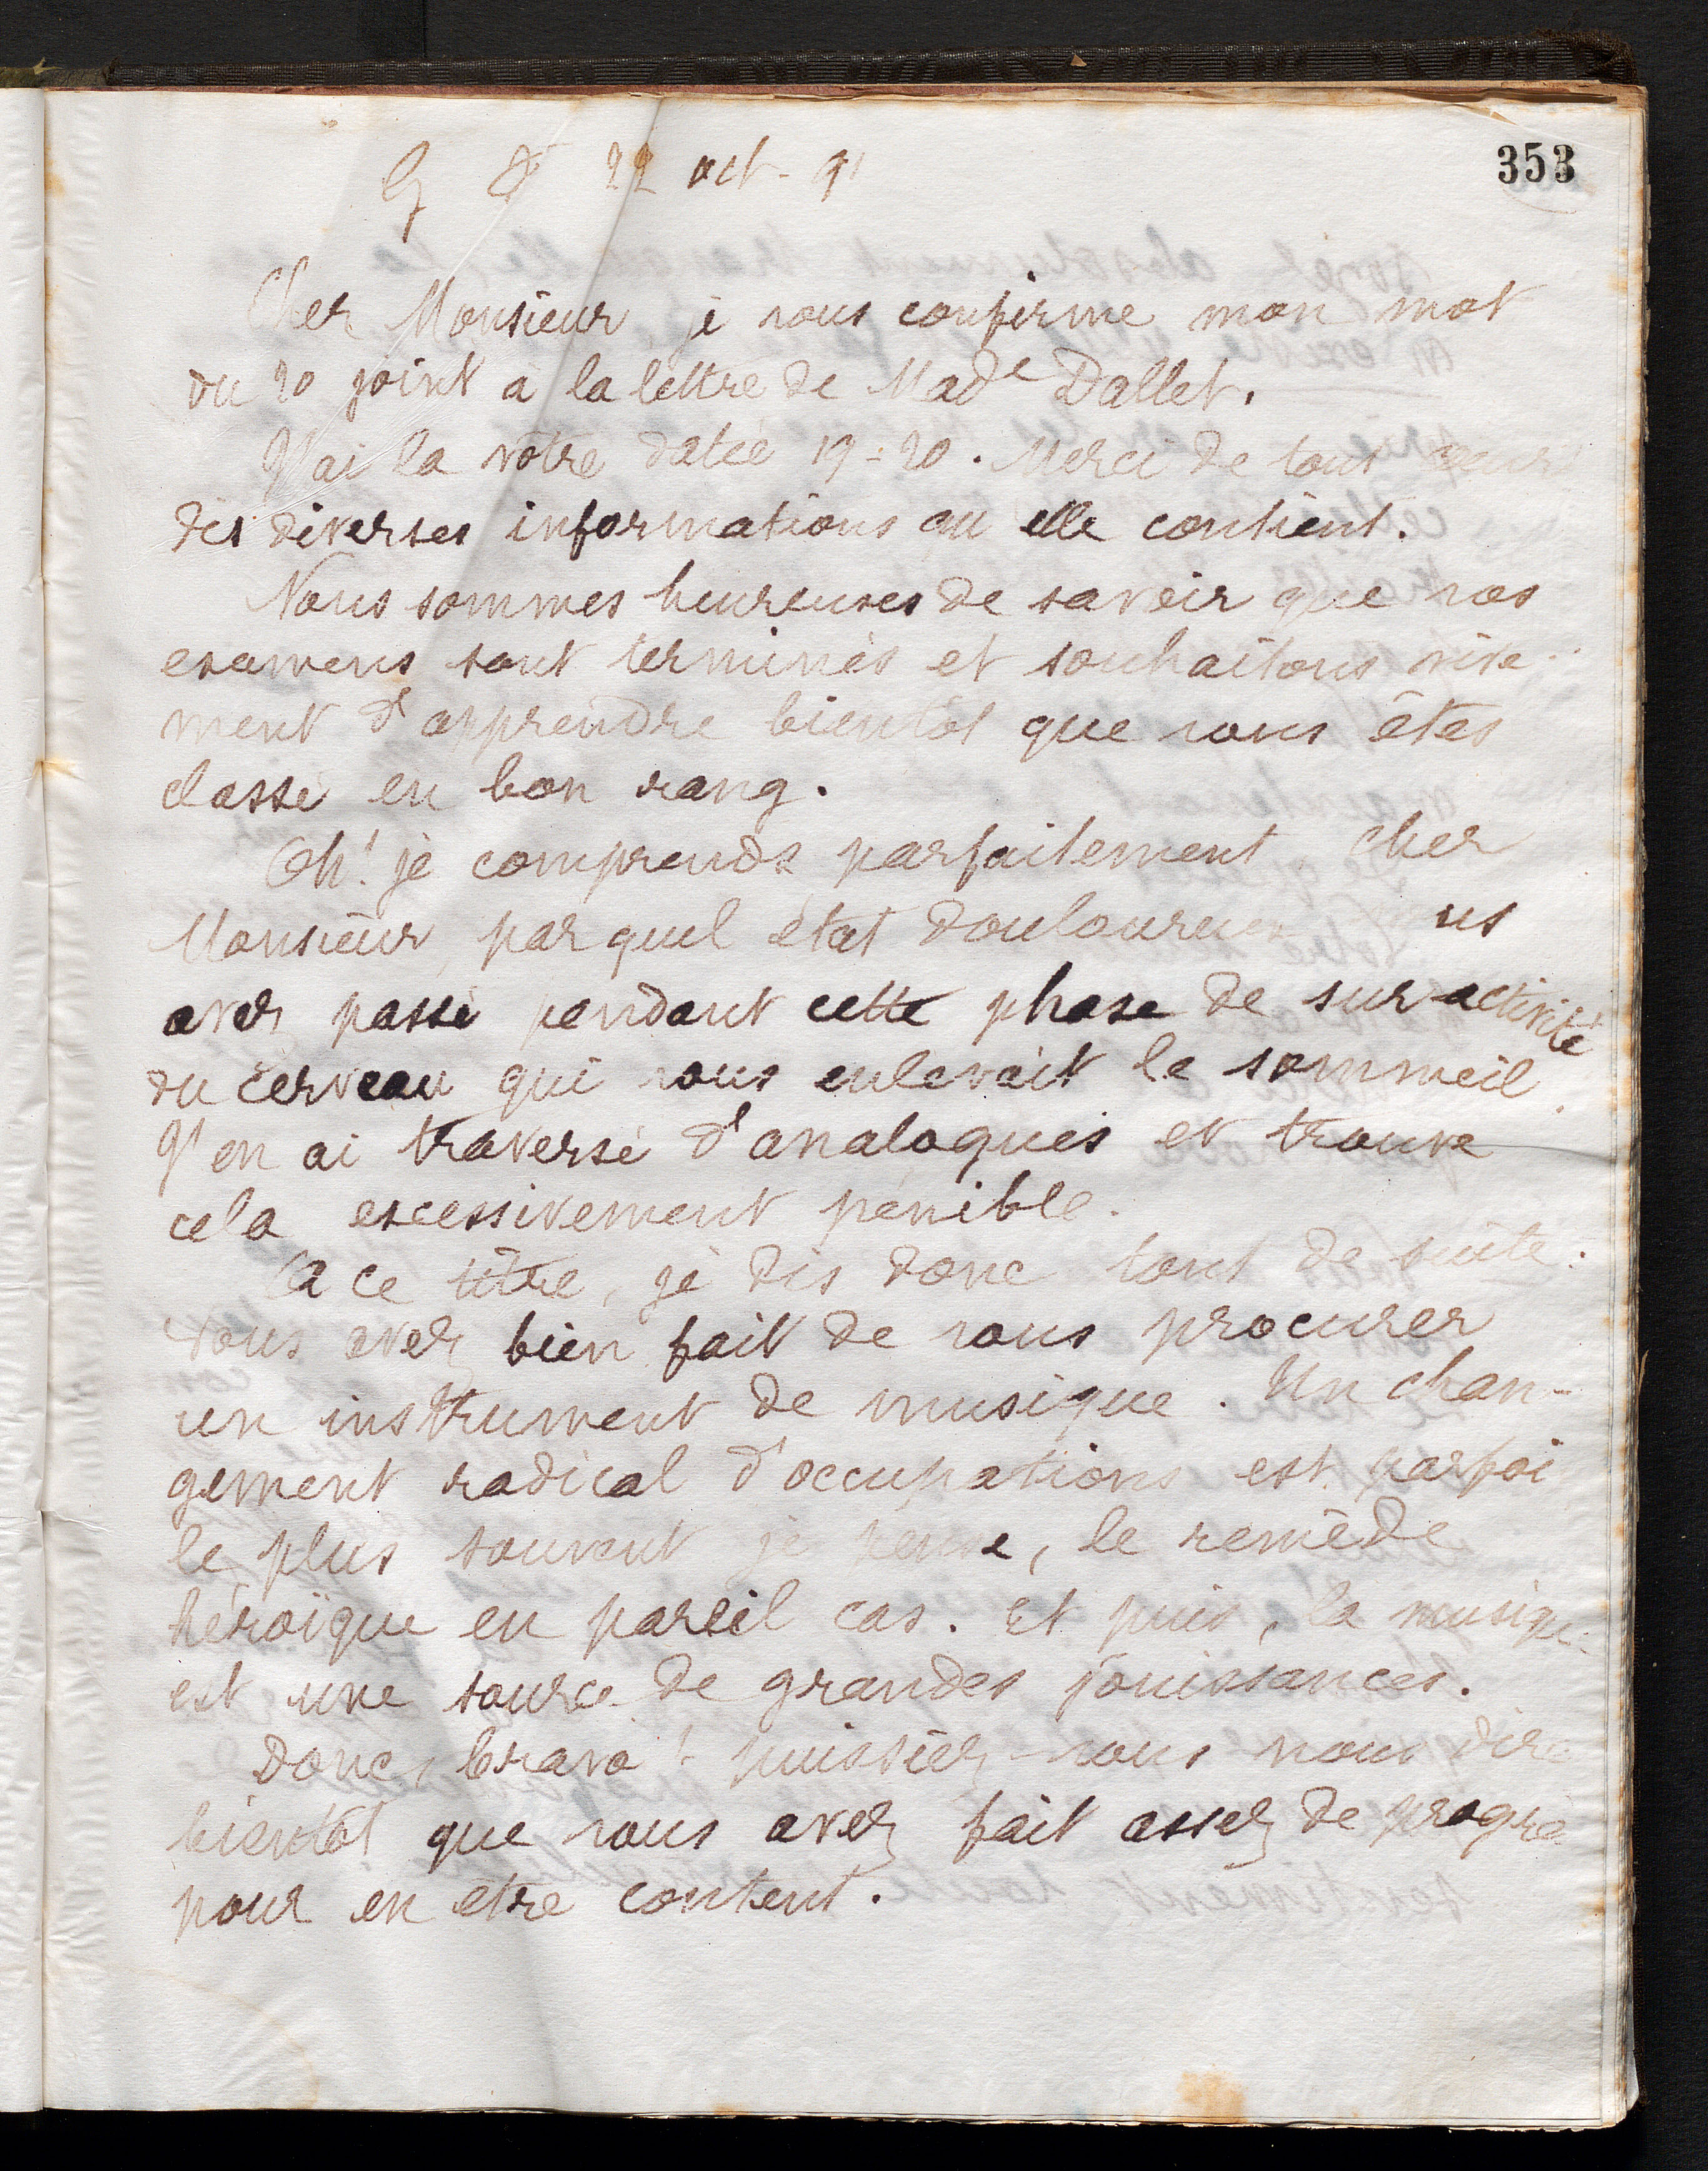 353
G 22 oct. 91
Cher Monsieur, je vous confirme mon mot
du 20 joint à la lettre de Made Dallet.
J'ai la vôtre datée 19-20. Merci de tout cœur
des diverses informations qu'elle contient.
Nous sommes heureuses de savoir que vos
examens sont terminés et souhaitons vive-
ment d'apprendre bientôt que vous êtes
classé en bon rang.
Oh! je comprends parfaitement, cher
Monsieur, par quel état douloureux us
avez passé pendant cette phase de suractivité
du cerveau qui vous enlevait le sommeil.
J'en ai traversé d'analogues et trouve
cela excessivement pénible.
A ce titre, je dis donc tout de suite:
vous avez bien fait de vous procurer
un instrument de musique. Un chan-
gement radical d'occupations est parfoi
le plus souvent je pense, le remède
héroïque en pareil cas. Et puis, la musique
est une source de grandes jouissances.
Donc, bravo! puissiez-vous nous dire
bientôt que vous avez fait assez de progrè
pour en être content.